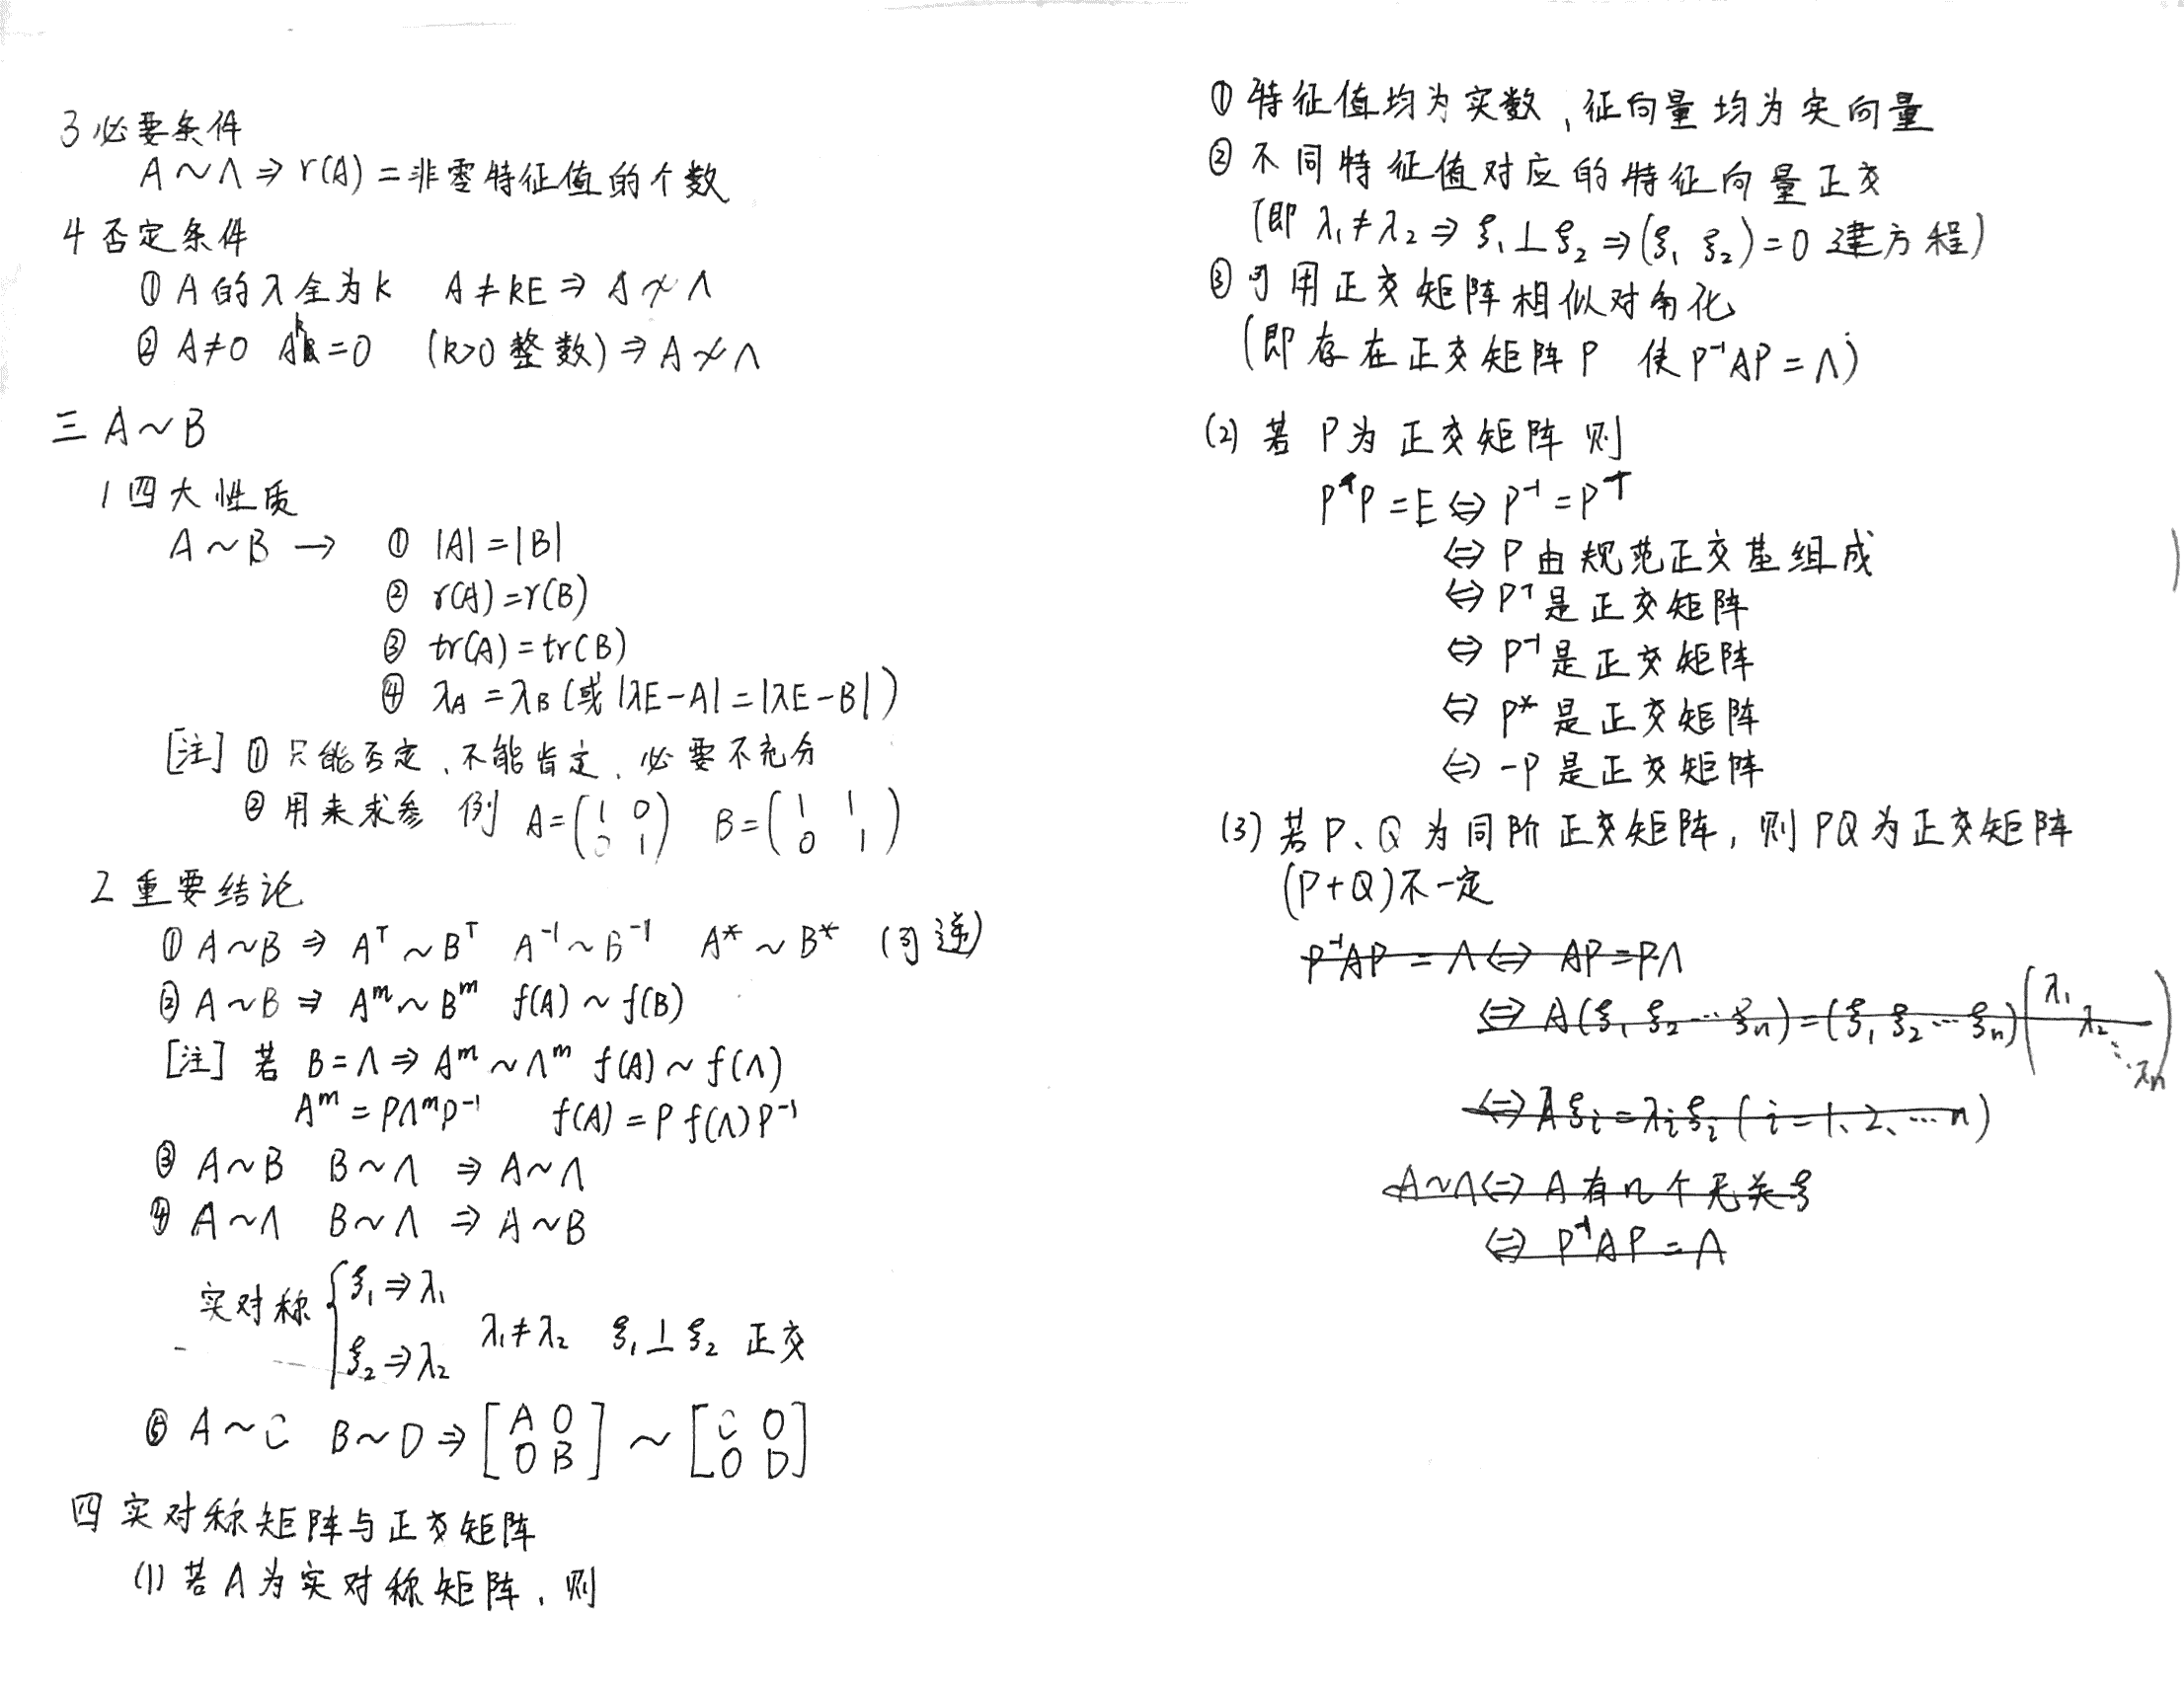 3 必要条件
A～Λ ⇒ r(A) = 非零特征值的个数
4 否定条件
① A的λ全为k A≠kE ⇒ A≁Λ
② A≠0 Aᵏ=0 (k>0 整数) ⇒ A≁Λ
三 A～B
1 四大性质
A～B → ① |A|=|B|
② r(A)=r(B)
③ tr(A)=tr(B)
④ λA=λB (或|λE-A|=|λE-B|)
[注] ① 只能否定、不能肯定、必要不充分
② 用来求参 例 A=(1 0; 0 1) B=(1 1; 0 1)
2 重要结论
① A～B ⇒ Aᵀ～Bᵀ A⁻¹～B⁻¹ A*～B* (可逆)
② A～B ⇒ Aᵐ～Bᵐ f(A)～f(B)
[注] 若 B=Λ ⇒ Aᵐ～Λᵐ f(A)～f(Λ)
Aᵐ=PΛᵐP⁻¹ f(A)=Pf(Λ)P⁻¹
③ A～B B～Λ ⇒ A～Λ
④ A～Λ B～Λ ⇒ A～B
实对称 { ξ₁⇒λ₁
ξ₂⇒λ₂ λ₁≠λ₂ ξ₁⊥ξ₂ 正交
⑤ A～C B～D ⇒ [A 0; 0 B] ～ [C 0; 0 D]
四 实对称矩阵与正交矩阵
(1) 若A为实对称矩阵、则
① 特征值均为实数,征向量均为实向量
② 不同特征值对应的特征向量正交
(即 λ₁≠λ₂ ⇒ ξ₁⊥ξ₂ ⇒ (ξ₁ ξ₂)=0 建方程)
③ 可用正交矩阵相似对角化
(即存在正交矩阵P 使P⁻¹AP=Λ)
(2) 若 P为正交矩阵 则
PᵀP=E ⇔ P⁻¹=Pᵀ
⇔ P由规范正交基组成
⇔ Pᵀ是正交矩阵
⇔ P⁻¹是正交矩阵
⇔ P*是正交矩阵
⇔ -P是正交矩阵
(3) 若P、Q为同阶正交矩阵,则PQ为正交矩阵
(P+Q)不一定
P⁻¹AP=Λ ⇔ AP=PΛ
⇔ A(ξ₁ ξ₂ … ξₙ)=(ξ₁ ξ₂ … ξₙ)(λ₁ λ₂ ⋱ λₙ)
⇔ Aξᵢ=λᵢξᵢ (i=1、2、…n)
A～Λ ⇔ A有n个无关ξ
⇔ P⁻¹AP=Λ